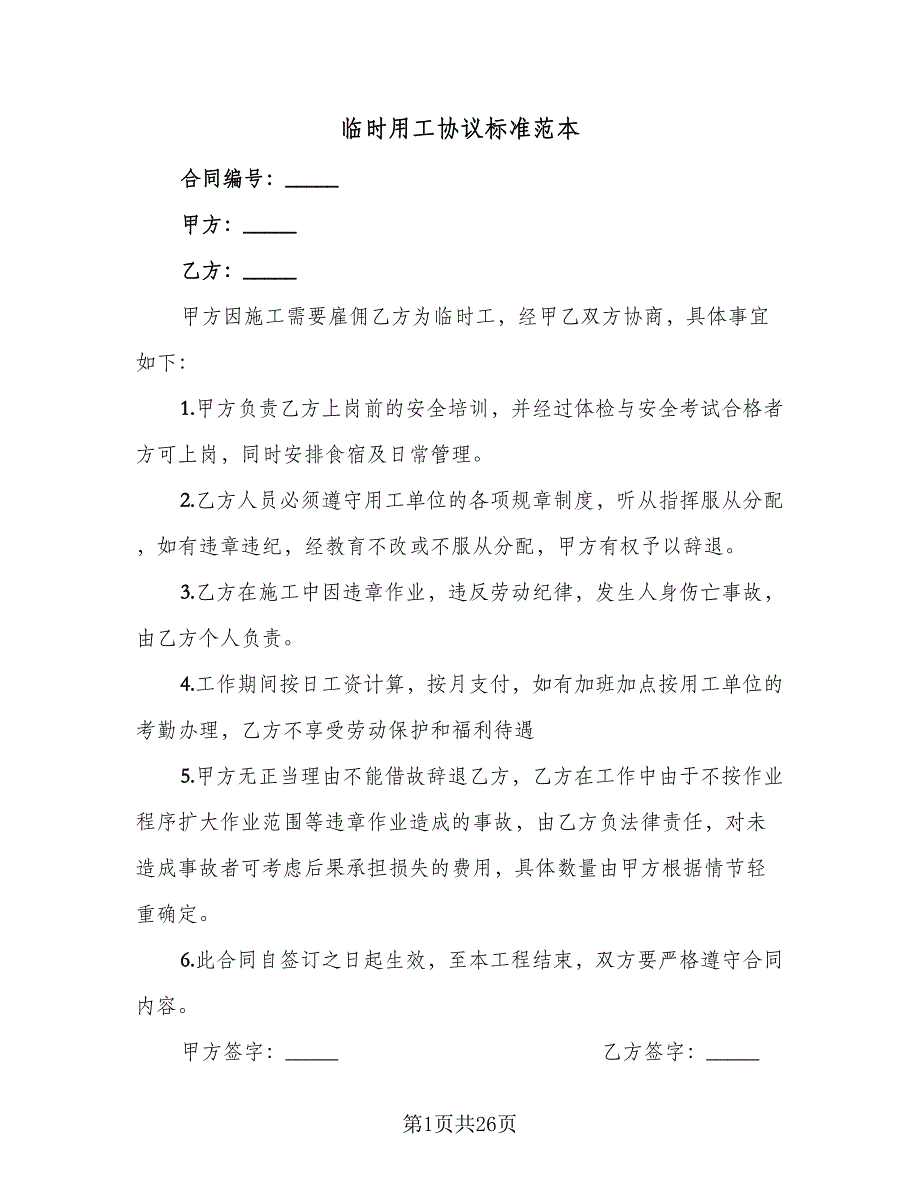 临时用工协议标准范本
合同编号：_____
甲方：_____
乙方：_____
甲方因施工需要雇佣乙方为临时工，经甲乙双方协商，具体事宜
如下：
1.甲方负责乙方上岗前的安全培训，并经过体检与安全考试合格者
方可上岗，同时安排食宿及日常管理。
2.乙方人员必须遵守用工单位的各项规章制度，听从指挥服从分配
，如有违章违纪，经教育不改或不服从分配，甲方有权予以辞退。
3.乙方在施工中因违章作业，违反劳动纪律，发生人身伤亡事故，
由乙方个人负责。
4.工作期间按日工资计算，按月支付，如有加班加点按用工单位的
考勤办理，乙方不享受劳动保护和福利待遇
5.甲方无正当理由不能借故辞退乙方，乙方在工作中由于不按作业
程序扩大作业范围等违章作业造成的事故，由乙方负法律责任，对未
造成事故者可考虑后果承担损失的费用，具体数量由甲方根据情节轻
重确定。
6.此合同自签订之日起生效，至本工程结束，双方要严格遵守合同
内容。
甲方签字：_____ 乙方签字：_____
第1页共26页